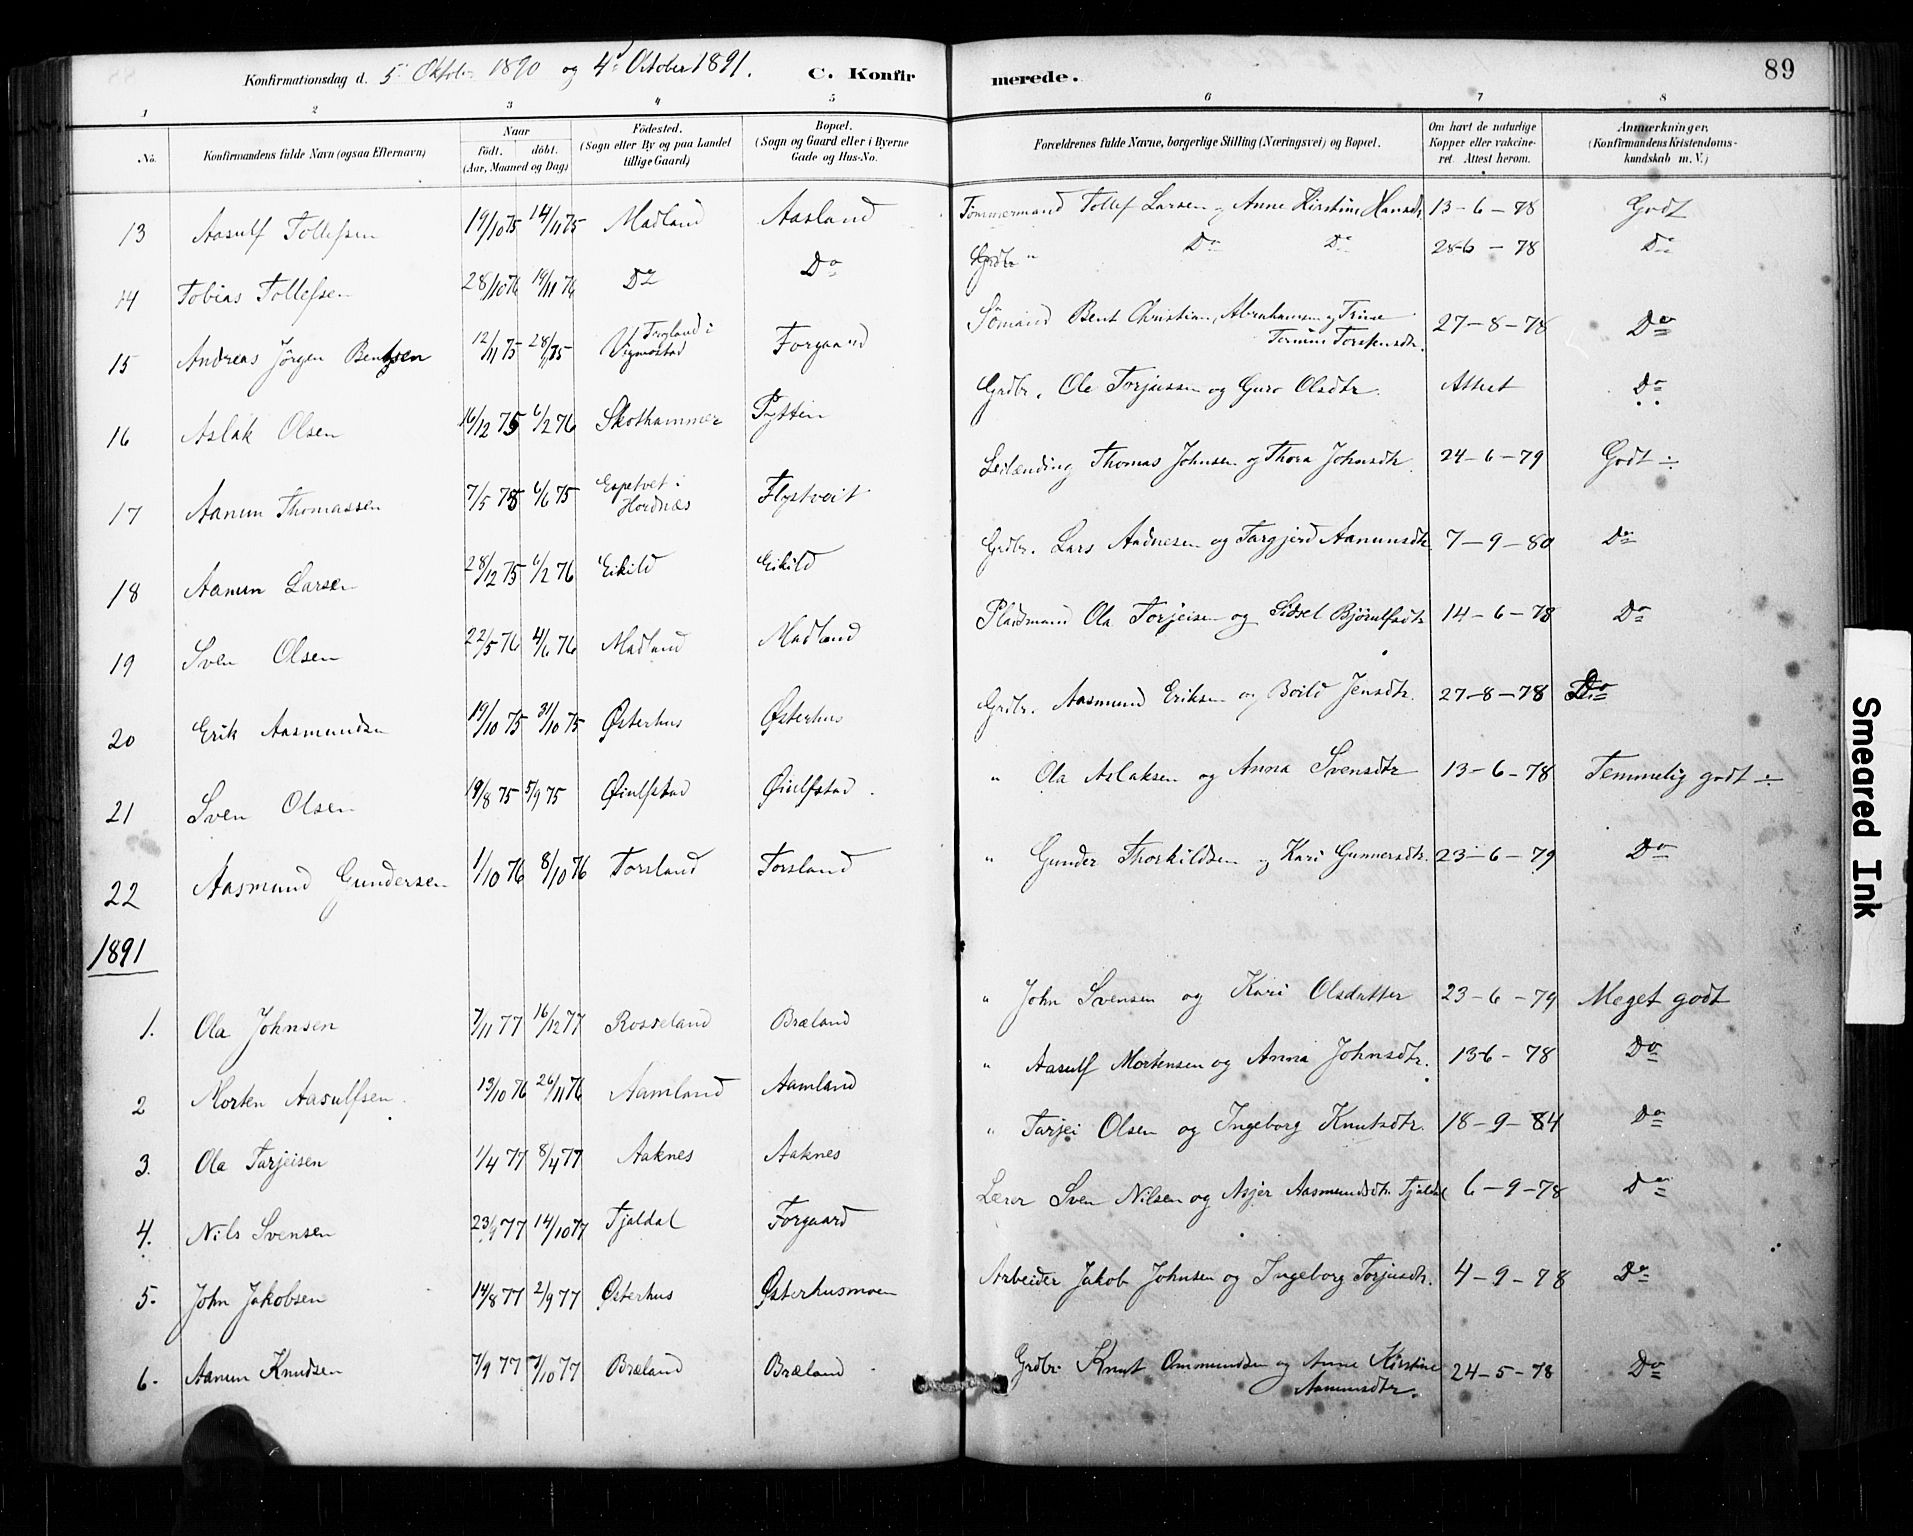 Konfirmationsdag d. 5 Oktob. 1890 og 4d October 1891. C. Konfirmerede. 89
1 2 3 4 5 6 7 8
No. Konfirmandens fulde Navn (ogsaa Efternavn) Naar födt. döbt. (Aar, Maaned og Dag) Födested. (Sogn eller By og paa Landet tillige Gaard) Bopæl. (Sogn og Gaard eller i Byerne Gade og Hus-No. Forældrenes fulde Navne, borgerlige Stilling (Næringsvei) og Bopæl. Om havt de naturlige Kopper eller vakcineret. Attest herom. Anmærkninger, (Konfirmandens Kristendomskundskab m. V.)
13 Aasulf Tollefsen 19/10 75 14/11 75 Madland Aasland Tömmermand Tollef Larsen og Anne Kirstine Hansdt. 13-6-78 Godt
14 Tobias Tollefsen 28/10 76 19/11 76 Do Do Grdbr " Do Do 28-6-78 Do
15 Andreas Jörgen Bentsen 12/11 75 28/ 75 i Vigmostad Forgaard Sömand Bent Christian Abrahamsen og Trine Tomine 27-8-78 Do
16 Aslak Olsen 16/12 75 6/2 76 Skothammer Pytten Grdbr. Ole Torjussen og Guro Olsdtr. Attest Do
17 Aanun Thomassen 7/5 75 6/6 75 Espetvet i Hordnæs Flystveit Leilænding Thomas Johnsen og Thora Johnsdtr. 24-6-79 Godt ÷
18 Aanun Larsen 28/12 75 6/2 76 Eikild Eikild Grdbr. Lars Aadnesen og Targjerd Aanunsdtr. 7-9-80 Do
19 Sven Olsen 22/5 76 4/6 76 Madland Madland Pladsmand Ola Torjeisen og Sidsel Björulfsdtr 14-6-78 Do
20 Erik Aasmundsen 19/10 75 31/10 75 Østerhus Østerhus Grdbr. Aasmund Eriksen og Boild Jensdtr. 27-8-78 Do
21 Sven Olsen 19/8 75 5/9 75 Øiulfstad Øiulfstad. " Ola Aslaksen og Anna Svensdtr 13-6-78 Temmelig godt ÷
22 Aasmund Gundersen 1/10 76 8/10 76 Torsland Torsland " Gunder Thorkildsen og Kari Gunnersdtr. 23-6-79 Do
1891
1. Ola Johnsen 7/11 77 16/12 77 Rosseland Bræland " John Svensen og Kari Olsdatter 23-6-79 Meget godt
2 Morten Aasulfsen. 13/10 76 26/11 76 Aamland Aamland " Aasulf Mortensen og Anna Johnsdtr. 13-6-78 Do
3. Ola Tarjeisen 1/4 77 8/4 77 Aaknes Aaknes " Tarjei Olsen og Ingeborg Knutsdtr. 18-9-84 Do
4. Nils Svensen 23/9 77 14/10 77 Tjaldal Forgaard Lærer Sven Nilsen og Asjer Aasmundsdtr. Tjaldal 6-9-78 Do
5. John Jakobsen 14/8 77 2/9 77 Østerhus Østerhusmoen Arbeider Jakob Johnsen og Ingeborg Torjusdtr. 4-9-78 Do
6. Aanun Knudsen 7/9 77 7/10 77 Bræland Bræland Grdbr. Knut Ommundsen og Anne Kirstine Aanunsdtr. 24-5-78 Do
Smeared Ink